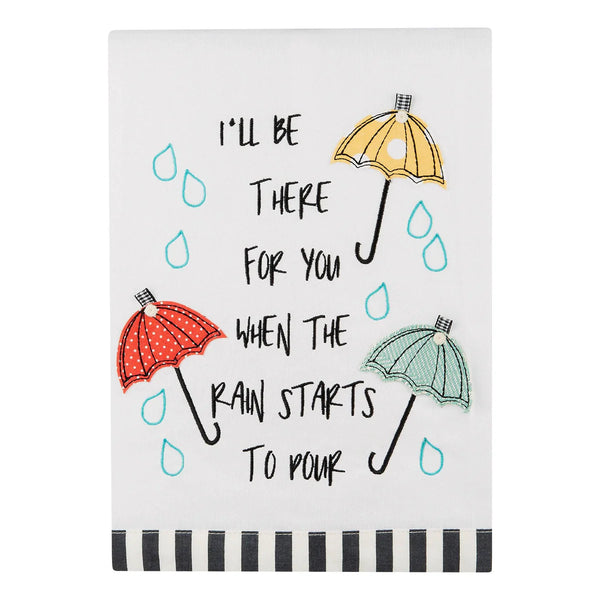 I'LL BE
THERE
FOR YOU
WHEN THE
RAIN STARTS
TO POUR